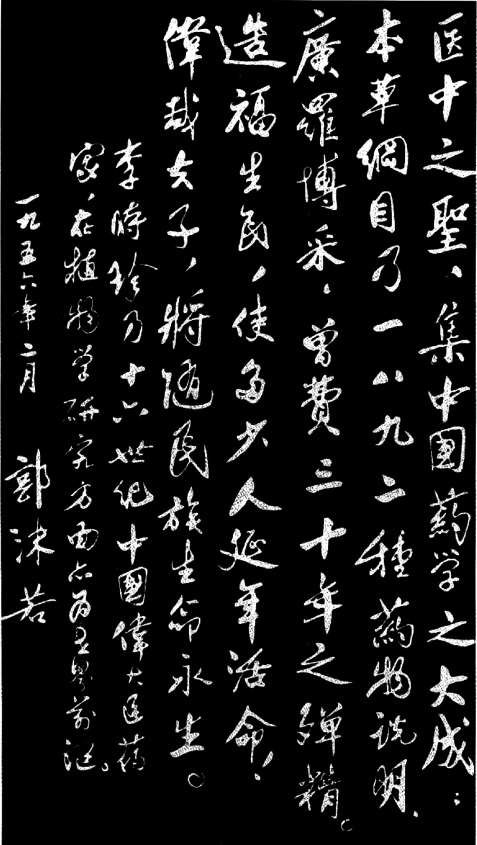 医中之聖、集中国葯学之大成：
本草綱目乃一八九二種葯物说明、
廣羅博采、曾费三十年之殫精。
造福生民、使多少人延年活命、
偉哉夫子、將随民族生命永生。
李時珍乃十六世纪中國偉大医药
家、在植物学研究方面亦为世界前
一九五六年二月
郭沫若